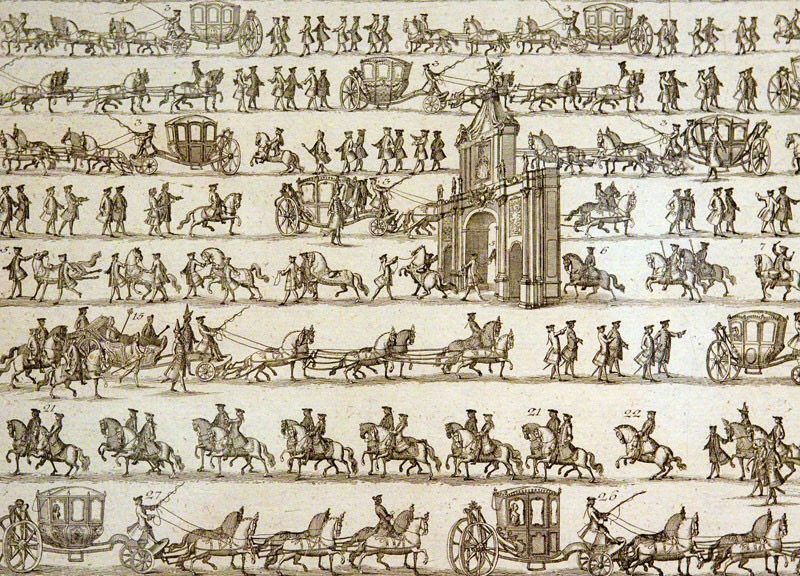 3 3
3
3 3
5 6 7
15
21 21 22
27 26